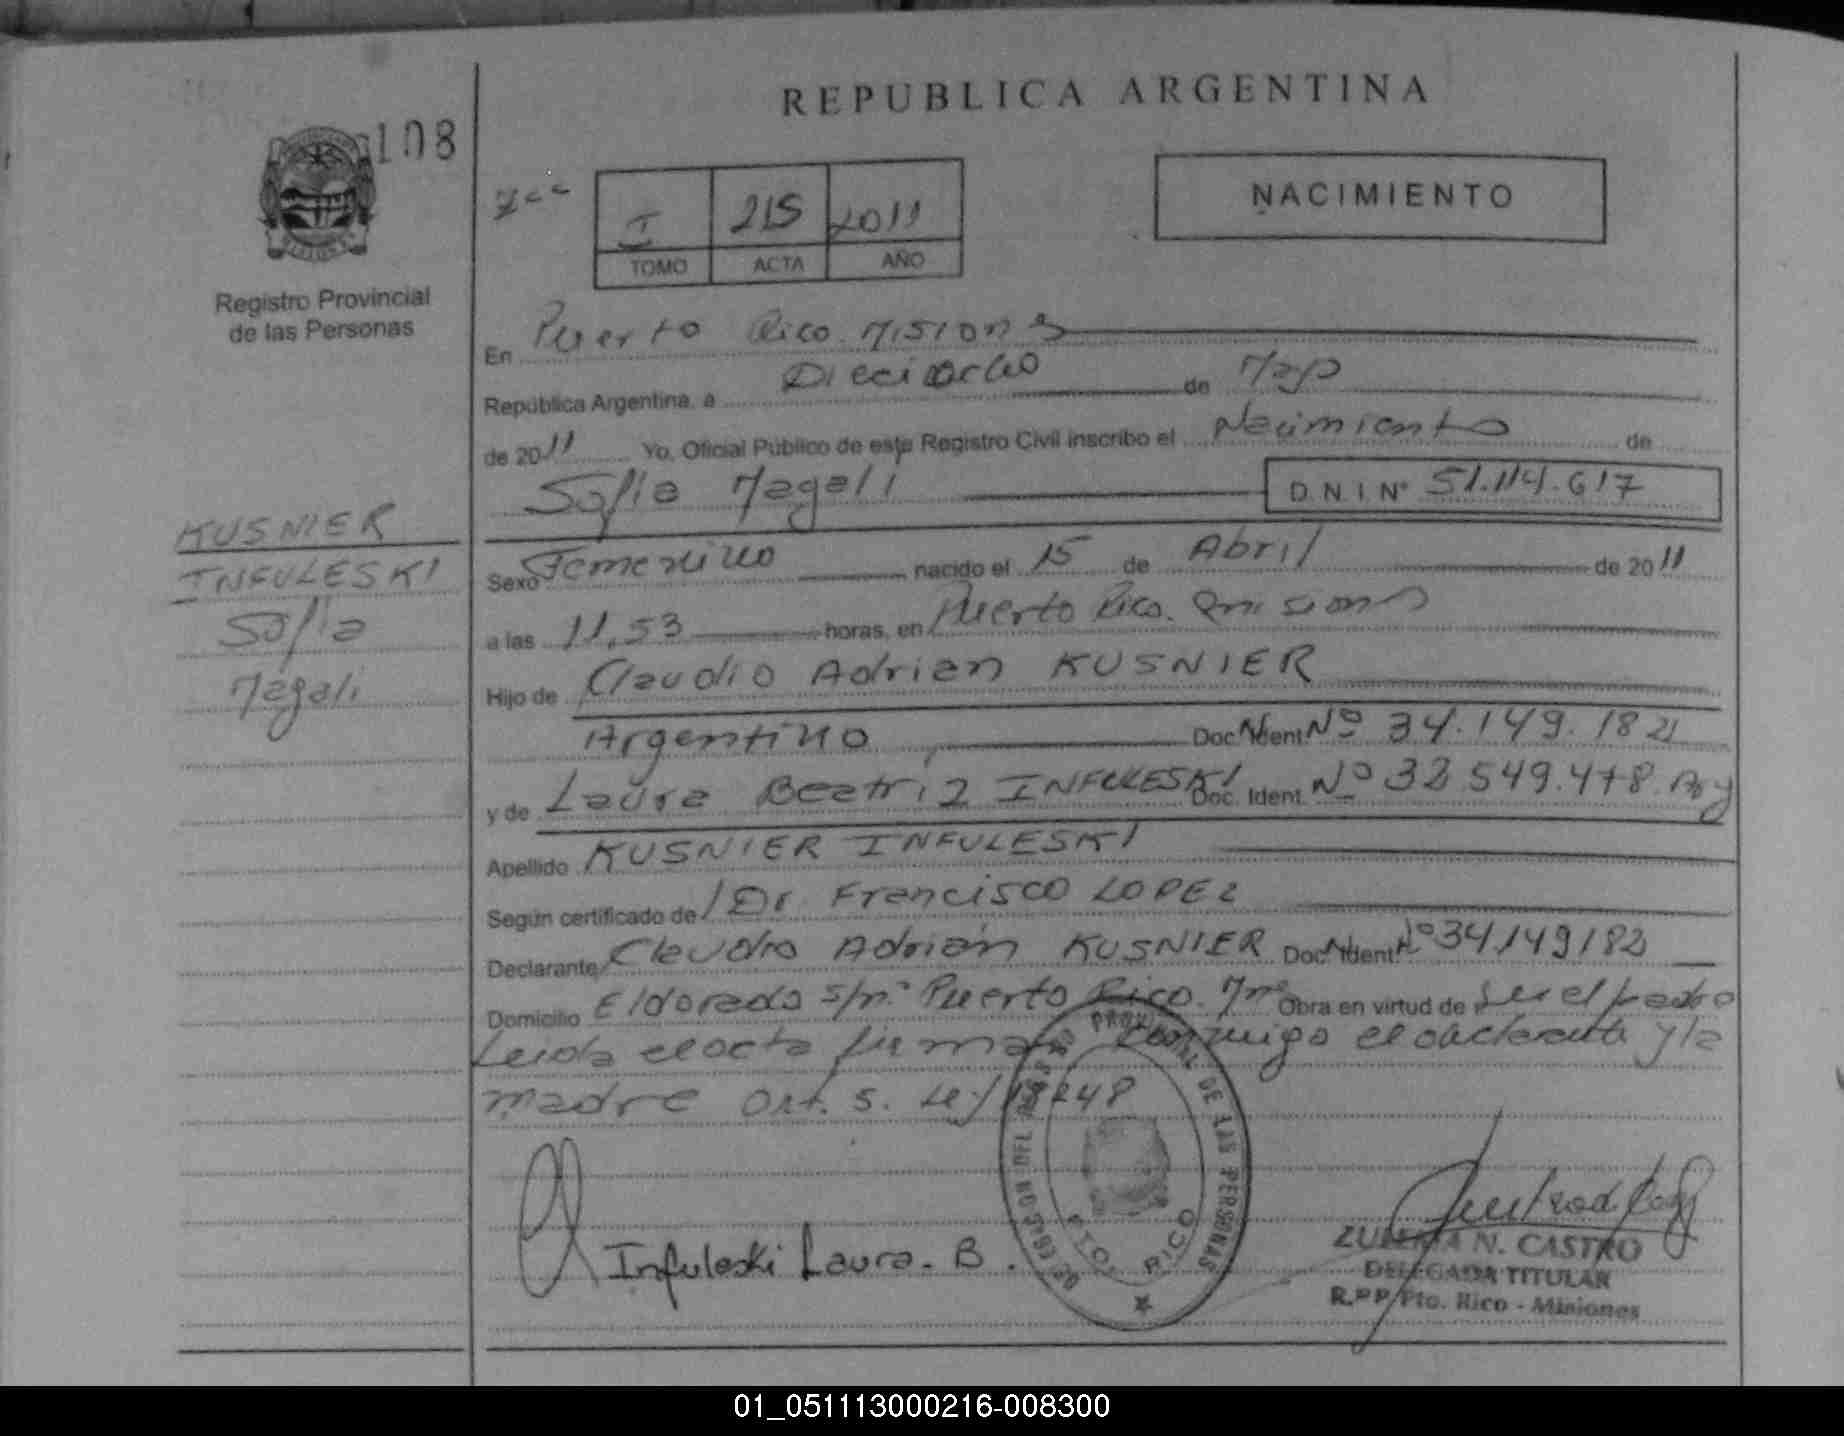 REPUBLICA ARGENTINA
108
I 215 2011
TOMO ACTA AÑO
NACIMIENTO
Registro Provincial
de las Personas
En Puerto Rico. Misiones
República Argentina, a Dieciocho de Mayo
de 2011 Yo, Oficial Público de este Registro Civil inscribo el Nacimiento de
Sofia Magali D.N.I. Nº 51.114.617
KUSNIER
INFULESKI
Sofia
Magali
Sexo Femenino nacido el 15 de Abril de 2011
a las 11,53 horas, en Puerto Rico. Misiones
Hijo de Claudio Adrian KUSNIER
Argentino Doc. Ident. Nº 34.149.182
y de Laura Beatriz INFULESKI Doc. Ident. Nº 32.549.478. Arg
Apellido KUSNIER INFULESKI
Según certificado de Dr. Francisco LOPEZ
Declarante Claudio Adrián KUSNIER Doc. Ident. Nº 34149182
Domicilio Eldorado s/nº Puerto Rico. Mnes Obra en virtud de Ser el padre
Leida el acta firman conmigo el declarante y la
madre Art. 5. Ley 18248
REGISTRO PROVINCIAL DE LAS PERSONAS
PTO. RICO
Infuleski Laura. B.
ZULEMA N. CASTRO
DELEGADA TITULAR
R.P.P. Pto. Rico - Misiones
01_051113000216-008300